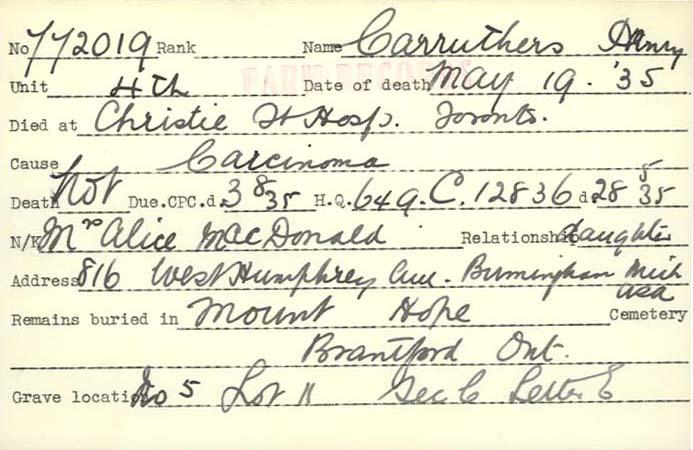 No 772019 Rank Name Carruthers Henry
Unit 4th Date of death May 19. '35
Died at Christie St Hosp. Toronto.
Cause Carcinoma
Death Not Due. CPC.d. 3 8 35 H.Q. 649.C.12836 d 28 5 35
N/K Mrs Alice MacDonald Relationship daughter
Address 816 West Humphrey Ave. Birmingham Mich
USA
Remains buried in Mount Hope Cemetery
Brantford Ont.
Grave location No 5 Lot 11 Sec C Letter E